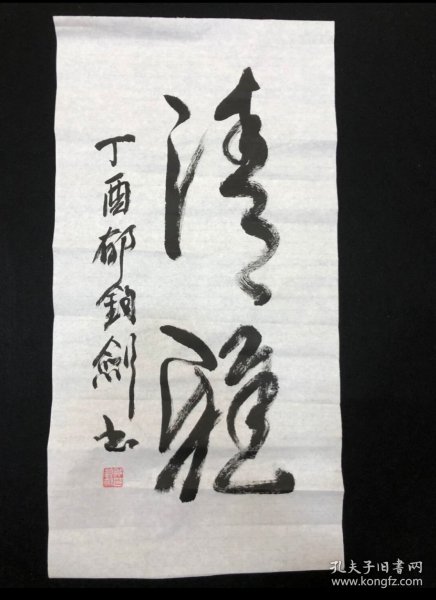 清雅
丁酉郁钧剑书
孔夫子旧书网
www.kongfz.com